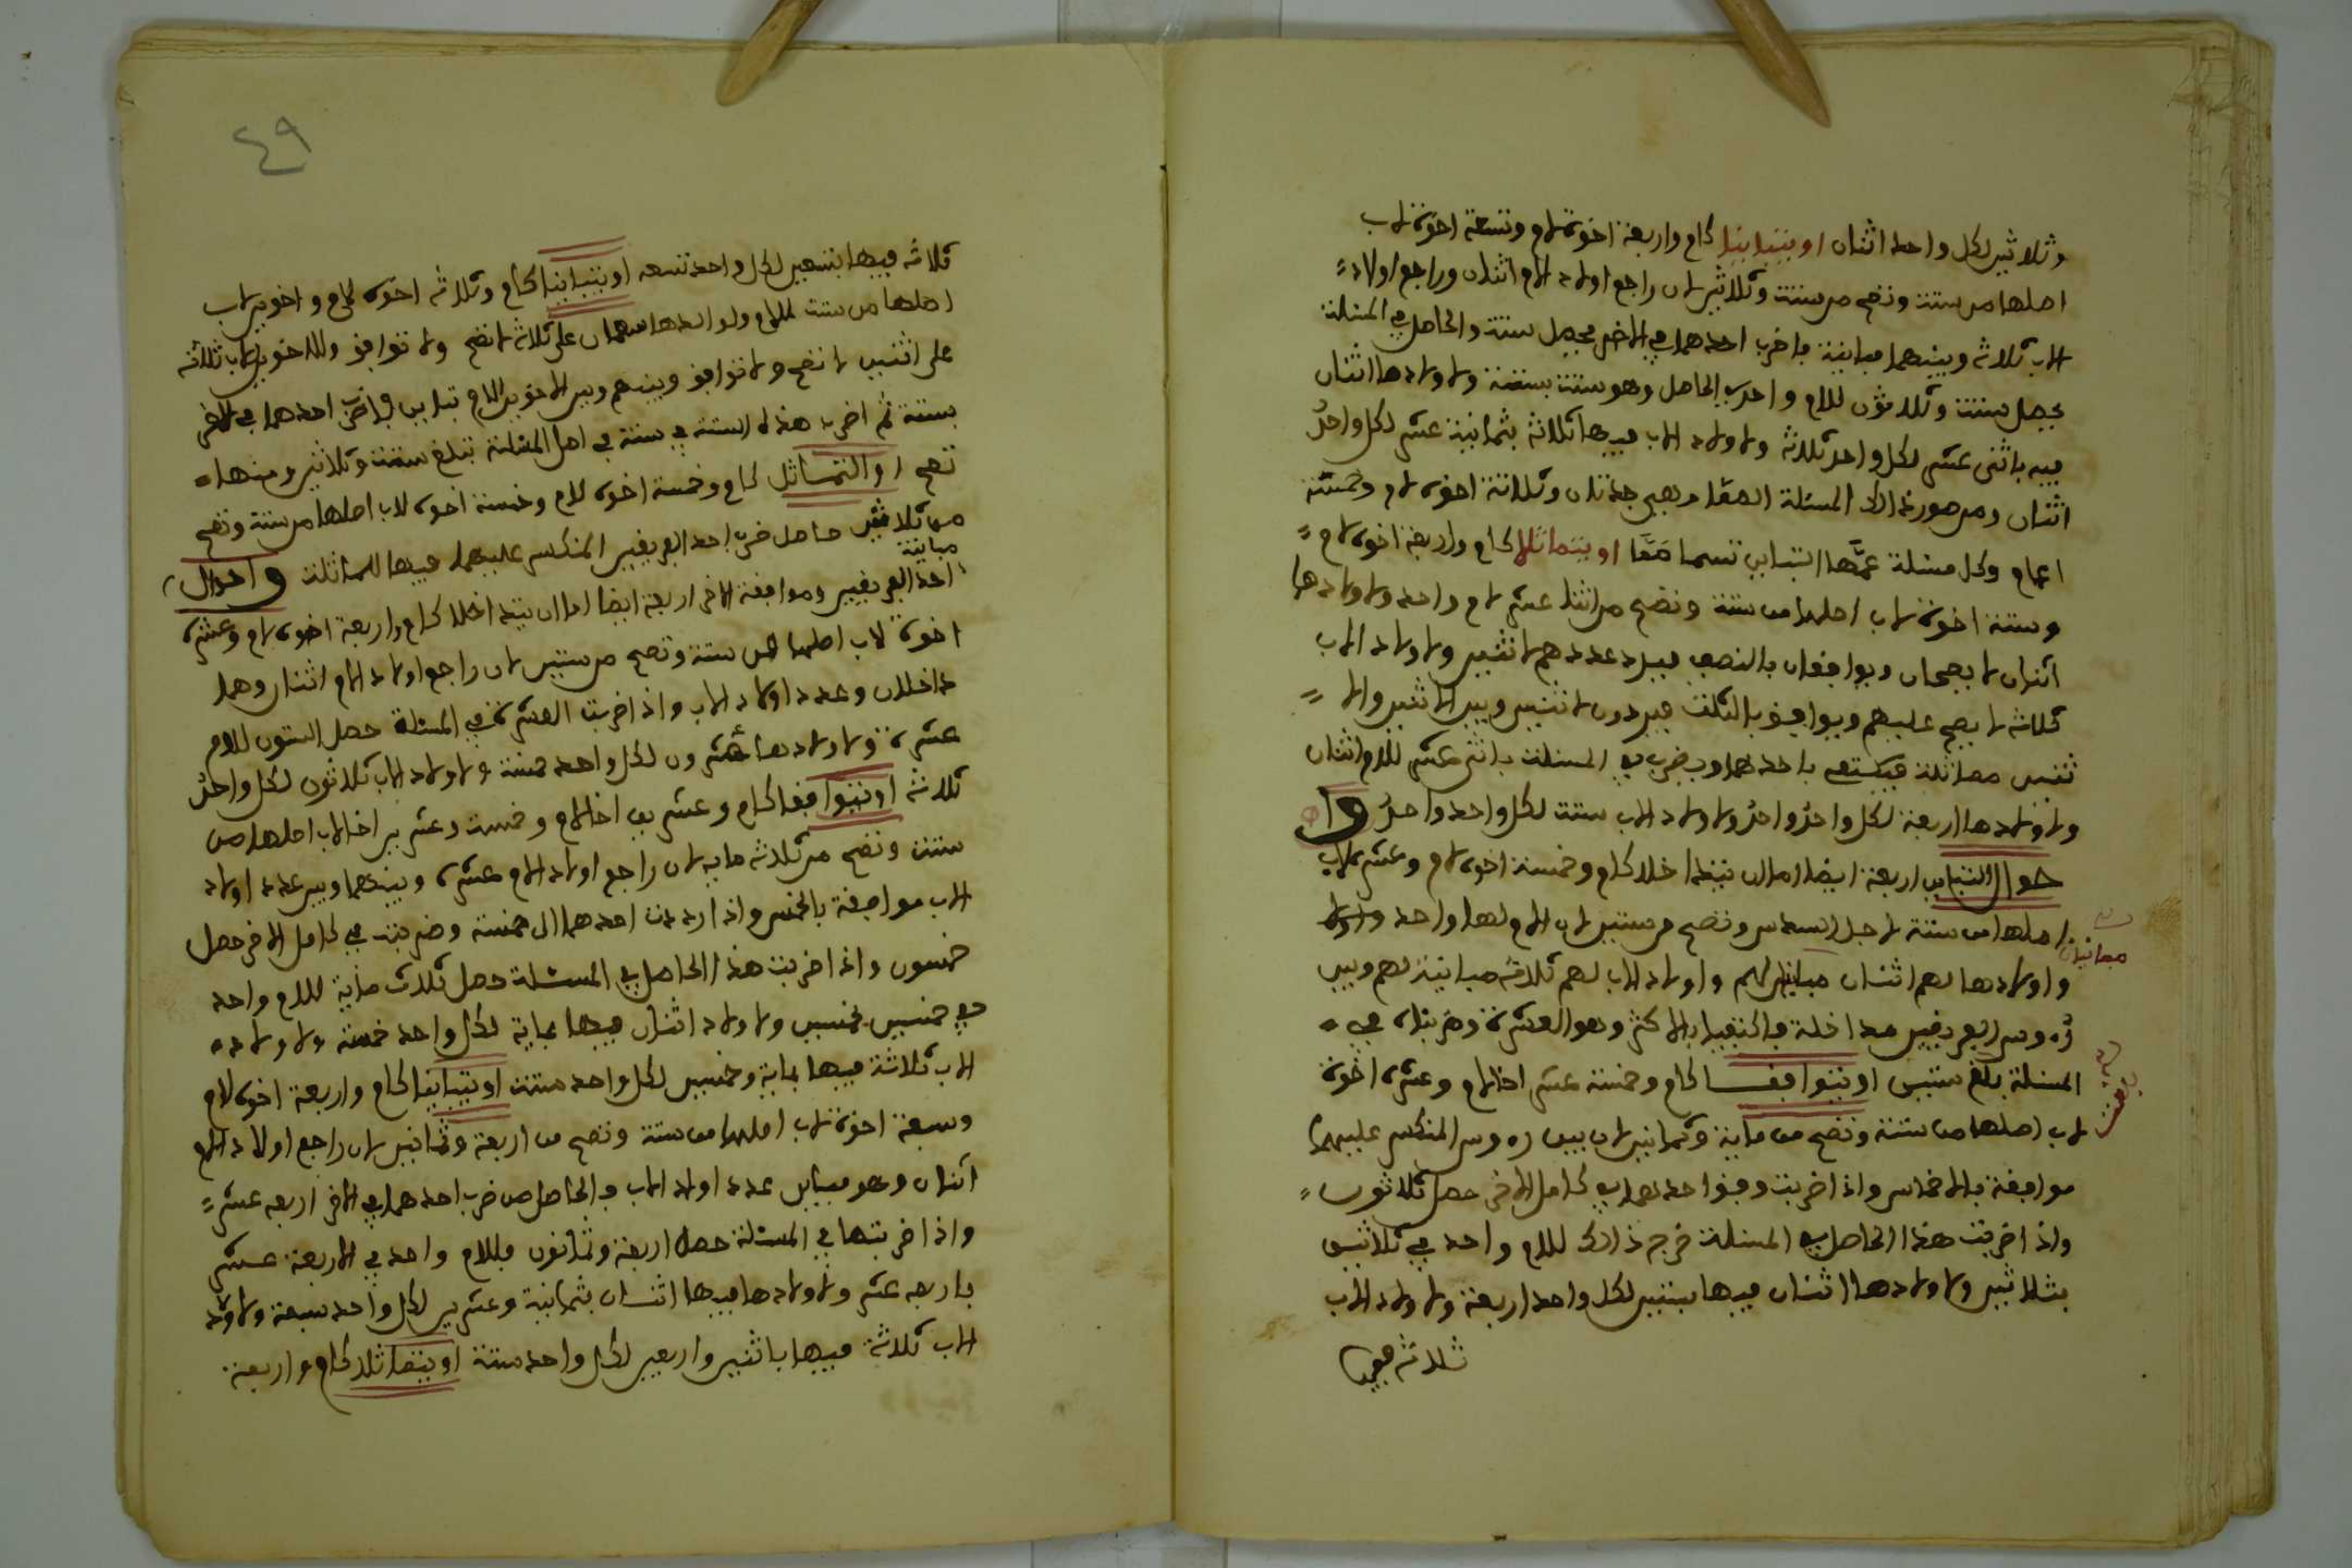 وثلاثين لكل واحد اثنان او يتباينا كام واربعة اخوة لام وتسعة اخوة لاب
اصلها من ستة وتصح من ستة وثلاثين لان راجع اولاد الام اثنان وراجع اولاد
الاب ثلاثة وبينهما مباينة فاضرب احدهما في الاخر يحصل ستة والحاصل في المسئلة
يحصل ستة وثلاثون للام واحد في الحاصل وهو ستة بستة ولاولادها اثنان
فيه باثنى عشر لكل واحد ثلاثة ولاولاد الاب فيها ثلاثة بثمانية عشر لكل واحد
اثنان ومن صور ذالك المسئلة الصماء وهي جدتان وثلاثة اخوة لام وخمسة
اعمام وكل مسئلة عمّها التباين تسما صمّا او يتماثلا كام واربعة اخوة لام
وستة اخوة لاب اصلها من ستة وتصح من اثنا عشر لام واحد ولاولادها
اثنان لا يصحان ويوافقان بالنصف فيرد عددهم لاثنين ولاولاد الاب
ثلاثة لا يصح عليهم ويوافق بالثلث فيردون لاثنين وبين الاثنين والا
ثنين مماثلة فيكتفى باحدهما ويضرب في المسئلة باثنى عشر للام اثنان
ولاولادها اربعة لكل واحد واحد ولاولاد الاب ستة لكل واحد واحد وا
حوال التباين اربعة ايضا اما ان يتداخلا كام وخمسة اخوة لام وعشرة لاب
اصلها من ستة لاجل السدس وتصح من ستين لان الام لها واحد
مباينان
واولادها لهم اثنان مباينان لهم واولاد الاب لهم ثلاثة مباينة لهم وبين
رءوس الفريقين مداخلة فاكتفينا بالاكثر وهو العشرة وضربناه في
المسئلة بلغ ستين او يتوافقا كام وخمسة عشر اخا لام وعشرة اخوة
لاب اصلها من ستة وتصح من ماية وثمانين لان بين رءوس المنكسر عليهما
موافقة بالاخماس واذا ضربت وفق احدهما في كامل الاخر حصل ثلاثون
واذا ضربت هذا الحاصل في المسئلة خرج ذالك للام واحد في ثلاثين
بثلاثين ولاولادها اثنان فيها بستين لكل واحد اربعة ولاولاد الاب
ثلاثة فيها
٤٩
ثلاثة فيها بتسعين لكل واحد تسعة او يتباينا كام وثلاثة اخوة لام واخوين لاب
اصلها من ستة للام ولولادها سهمان على ثلاثة لا تصح ولا توافق وللاخوين لاب ثلاثة
على اثنين لا تصح ولا توافق وبينهم وبين الاخوين للام تباين فاضرب احدهما في الاخر
بستة ثم اضرب هذه الستة في ستة في اصل المسئلة تبلغ ستة وثلاثين ومنها
تصح او التماثل كام وخمسة اخوة للام وخمسة اخوة لاب اصلها من ستة وتصح
من ثلاثين حاصل ضرب احد الفريقين المنكسر عليهما فيها للمماثلة واحوال
مباينة
احد الفريقين وموافقة الاخر اربعة ايضا اما ان يتداخلا كام واربعة اخوة لام وعشرة
اخوة لاب اصلها من ستة وتصح من ستين لان راجع اولاد الام اثنان وهما
داخلان وعدد اولاد الاب واذا ضربت العشرة في المسئلة حصل الستون للام
عشرة ولاولادها عشرون لكل واحد خمسة ولاولاد الاب ثلاثون لكل واحد
ثلاثة او يتوافقا كام وعشرين اخا لام وخمسة وعشرين اخا لاب اصلها من
ستة وتصح من ثلاثة ماية لان راجع اولاد الام عشرة وبينهما وبين عدد اولاد
الاب موافقة بالخمس واذا رددت احدهما الى خمسة وضربت في كامل الاخر حصل
خمسون واذا ضربت هذا الحاصل في المسئلة حصل ثلاث ماية للام واحد
في خمسين بخمسين ولاولاد اثنان فيها بماية لكل واحد خمسة ولاولاد
الاب ثلاثة فيها بماية وخمسين لكل واحد ستة او يتباينا كام واربعة اخوة لام
وسبعة اخوة لاب اصلها من ستة وتصح من اربعة وثمانين لان راجع اولاد الام
اثنان وهو مباين عدد اولاد الاب فالحاصل من ضرب احدهما في الاخر اربعة عشر
واذا ضربتها في المسئلة حصل اربعة وثمانون فللام واحد في الاربعة عشر
باربعة عشر ولاولادها فيها اثنان بثمانية وعشرين لكل واحد سبعة ولاولاد
الاب ثلاثة فيها باثنين واربعين لكل واحد ستة او يتماثلا كام واربعة